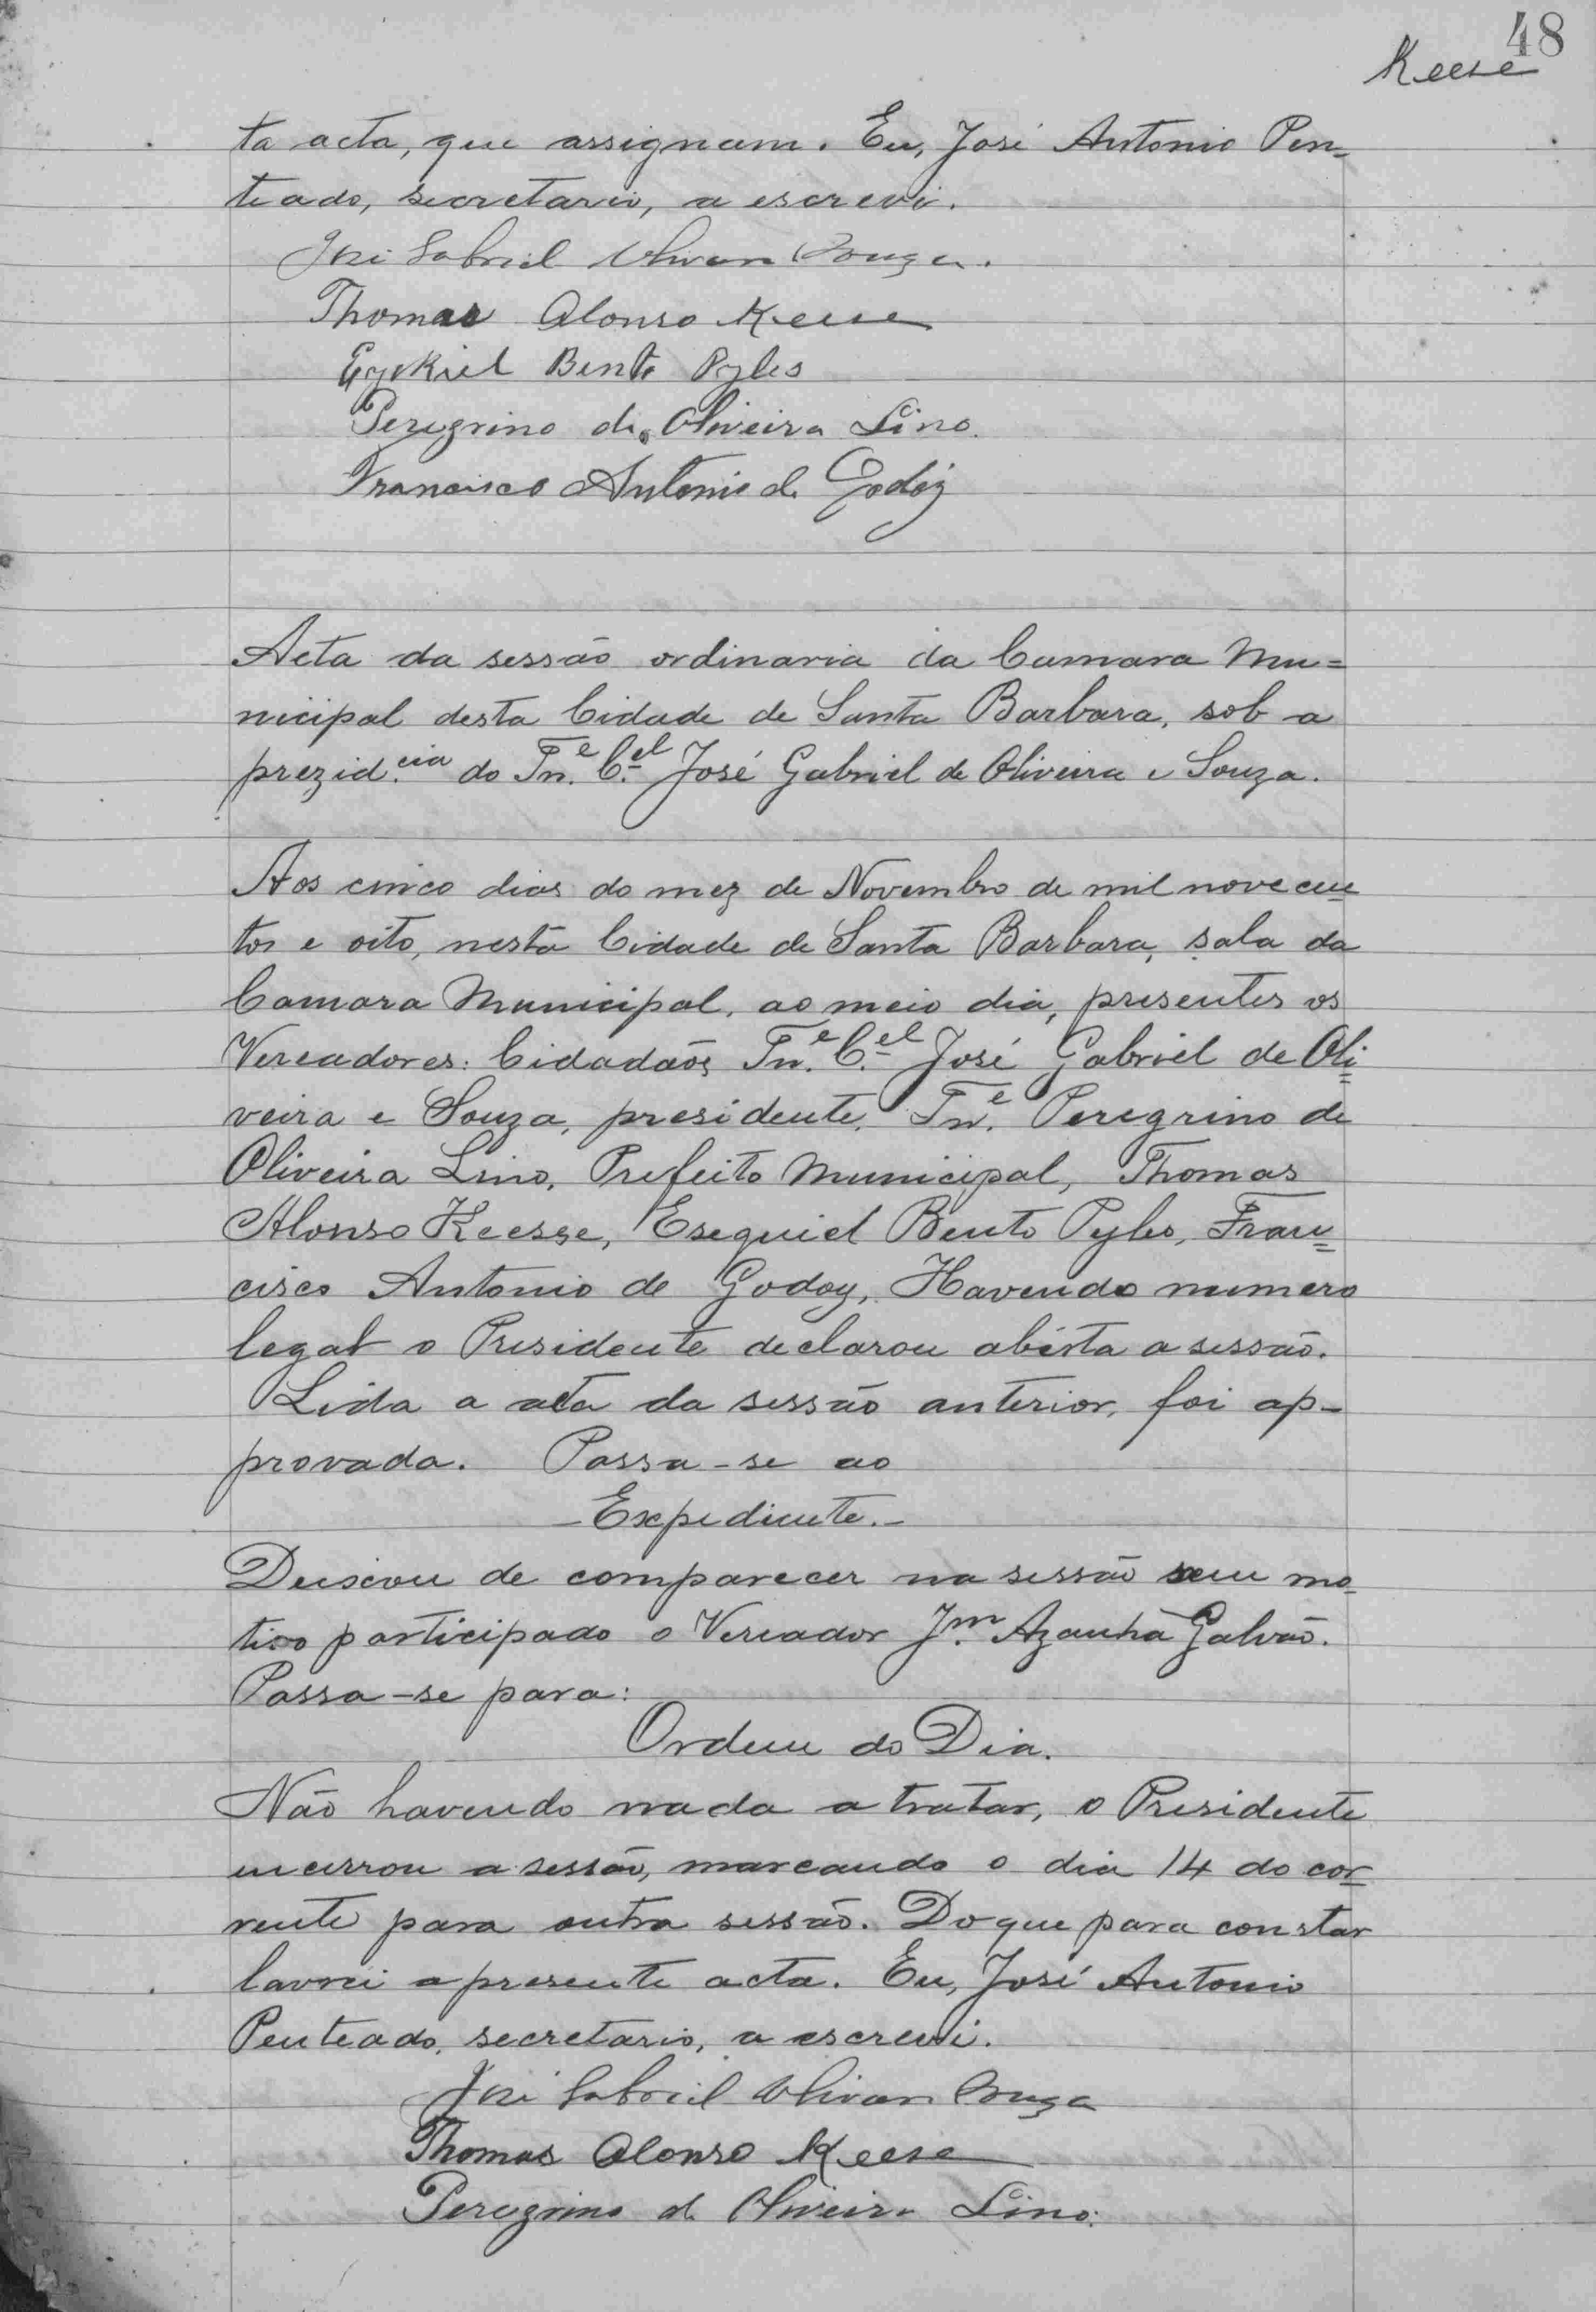 48
Keese
ta acta, que assignam. Eu, José Antonio Pen-
teado, secretario, a escrevi.
José Gabriel Olivera Souza.
Thomas Alonso Keese
Ezekiel Bento Pyles
Peregrino de Oliveira Lino.
Francisco Antonio de Godóy
Acta da sessão ordinaria da Camara Mu=
nicipal desta Cidade de Santa Barbara, sob a
prezid.cia do Tn.e C.el José Gabriel de Oliveira e Souza.
Aos cinco dias do mez de Novembro de mil novecen
tos e oito, nesta Cidade de Santa Barbara, sala da
Camara Municipal, ao meio dia, presentes os
Vereadores: Cidadãos Tn.e C.el José Gabriel de Oli
veira e Souza, presidente, Tn.e Peregrino de
Oliveira Lino, Prefeito Municipal, Thomas
Alonso Keesse, Esequiel Bento Pyles, Fran
cisco Antonio de Godoy, Havendo numero
legal o Presidente declarou abérta a sessão.
Lida a acta da sessão anterior, foi ap-
provada. Passa-se ao
- Expediente. -
Deiscou de comparecer na sessão sem mo
tivo participado o Vereador Jm. Azanha Galvão.
Passa-se para:
Ordem do Dia.
Não havendo nada a tratar, o Presidente
encerrou a sessão, marcando o dia 14 do cor
rente para outra sessão. Do que para constar
lavrei a presente acta. Eu, José Antonio
Penteado, secretario, a escrevi.
José Gabriel Olivera Souza
Thomas Alonso Keese
Peregrino de Oliveira Lino.